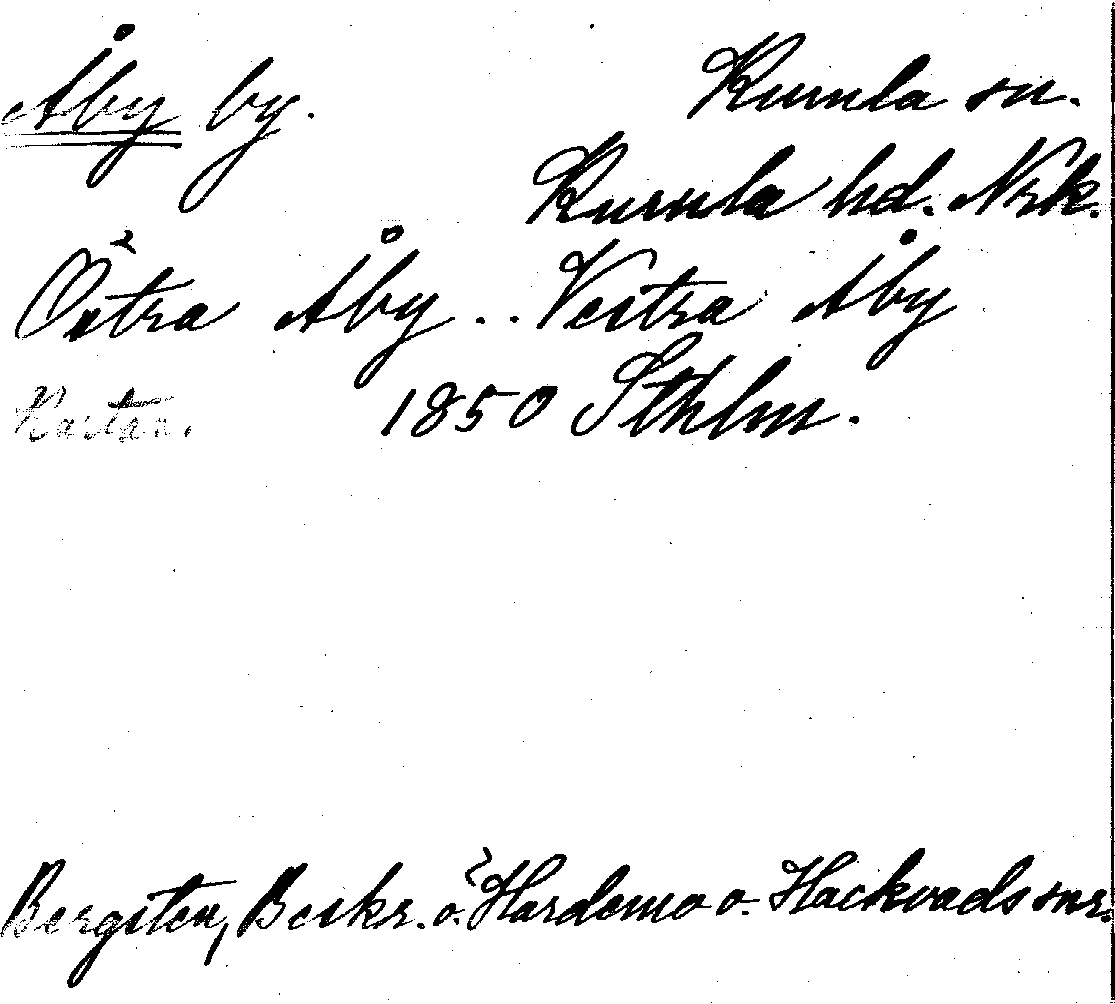 Åby by. Kumla sn.
Kumla hd. Nrk.
Östra Åby .. Vestra Åby
Kartan. 1850 Sthlm.
Bergsten, Beskr. ö. Hardemo o. Hackvads snr.